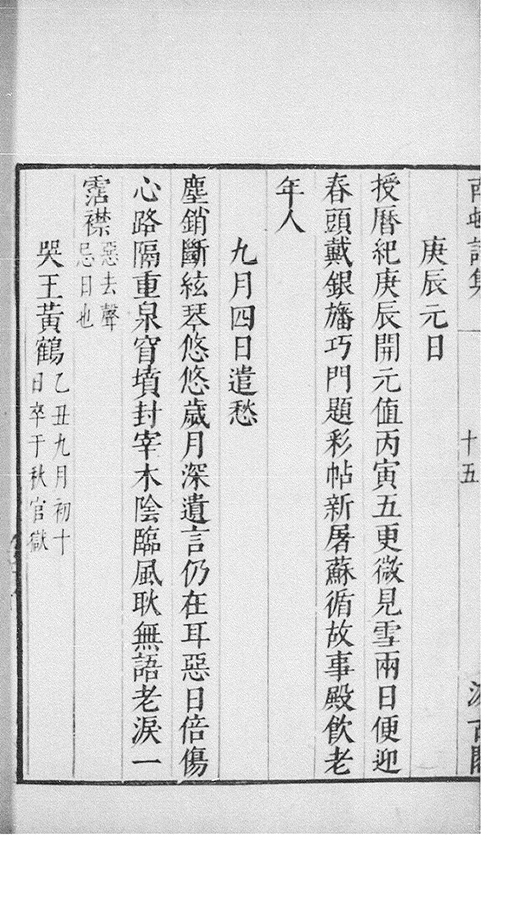 十五
庚辰元日
授曆紀庚辰開元值丙寅五更微見雪兩日便迎
春頭戴銀旛巧門題彩帖新屠蘇循故事殿飲老
年人
九月四日遣愁
塵銷斷絃琴悠悠歲月深遺言仍在耳惡日倍傷
心路隔重泉窅墳封宰木陰臨風耿無語老淚一
霑襟惡去聲
忌日也
哭王黃鶴乙丑九月初十
日卒于秋官獄